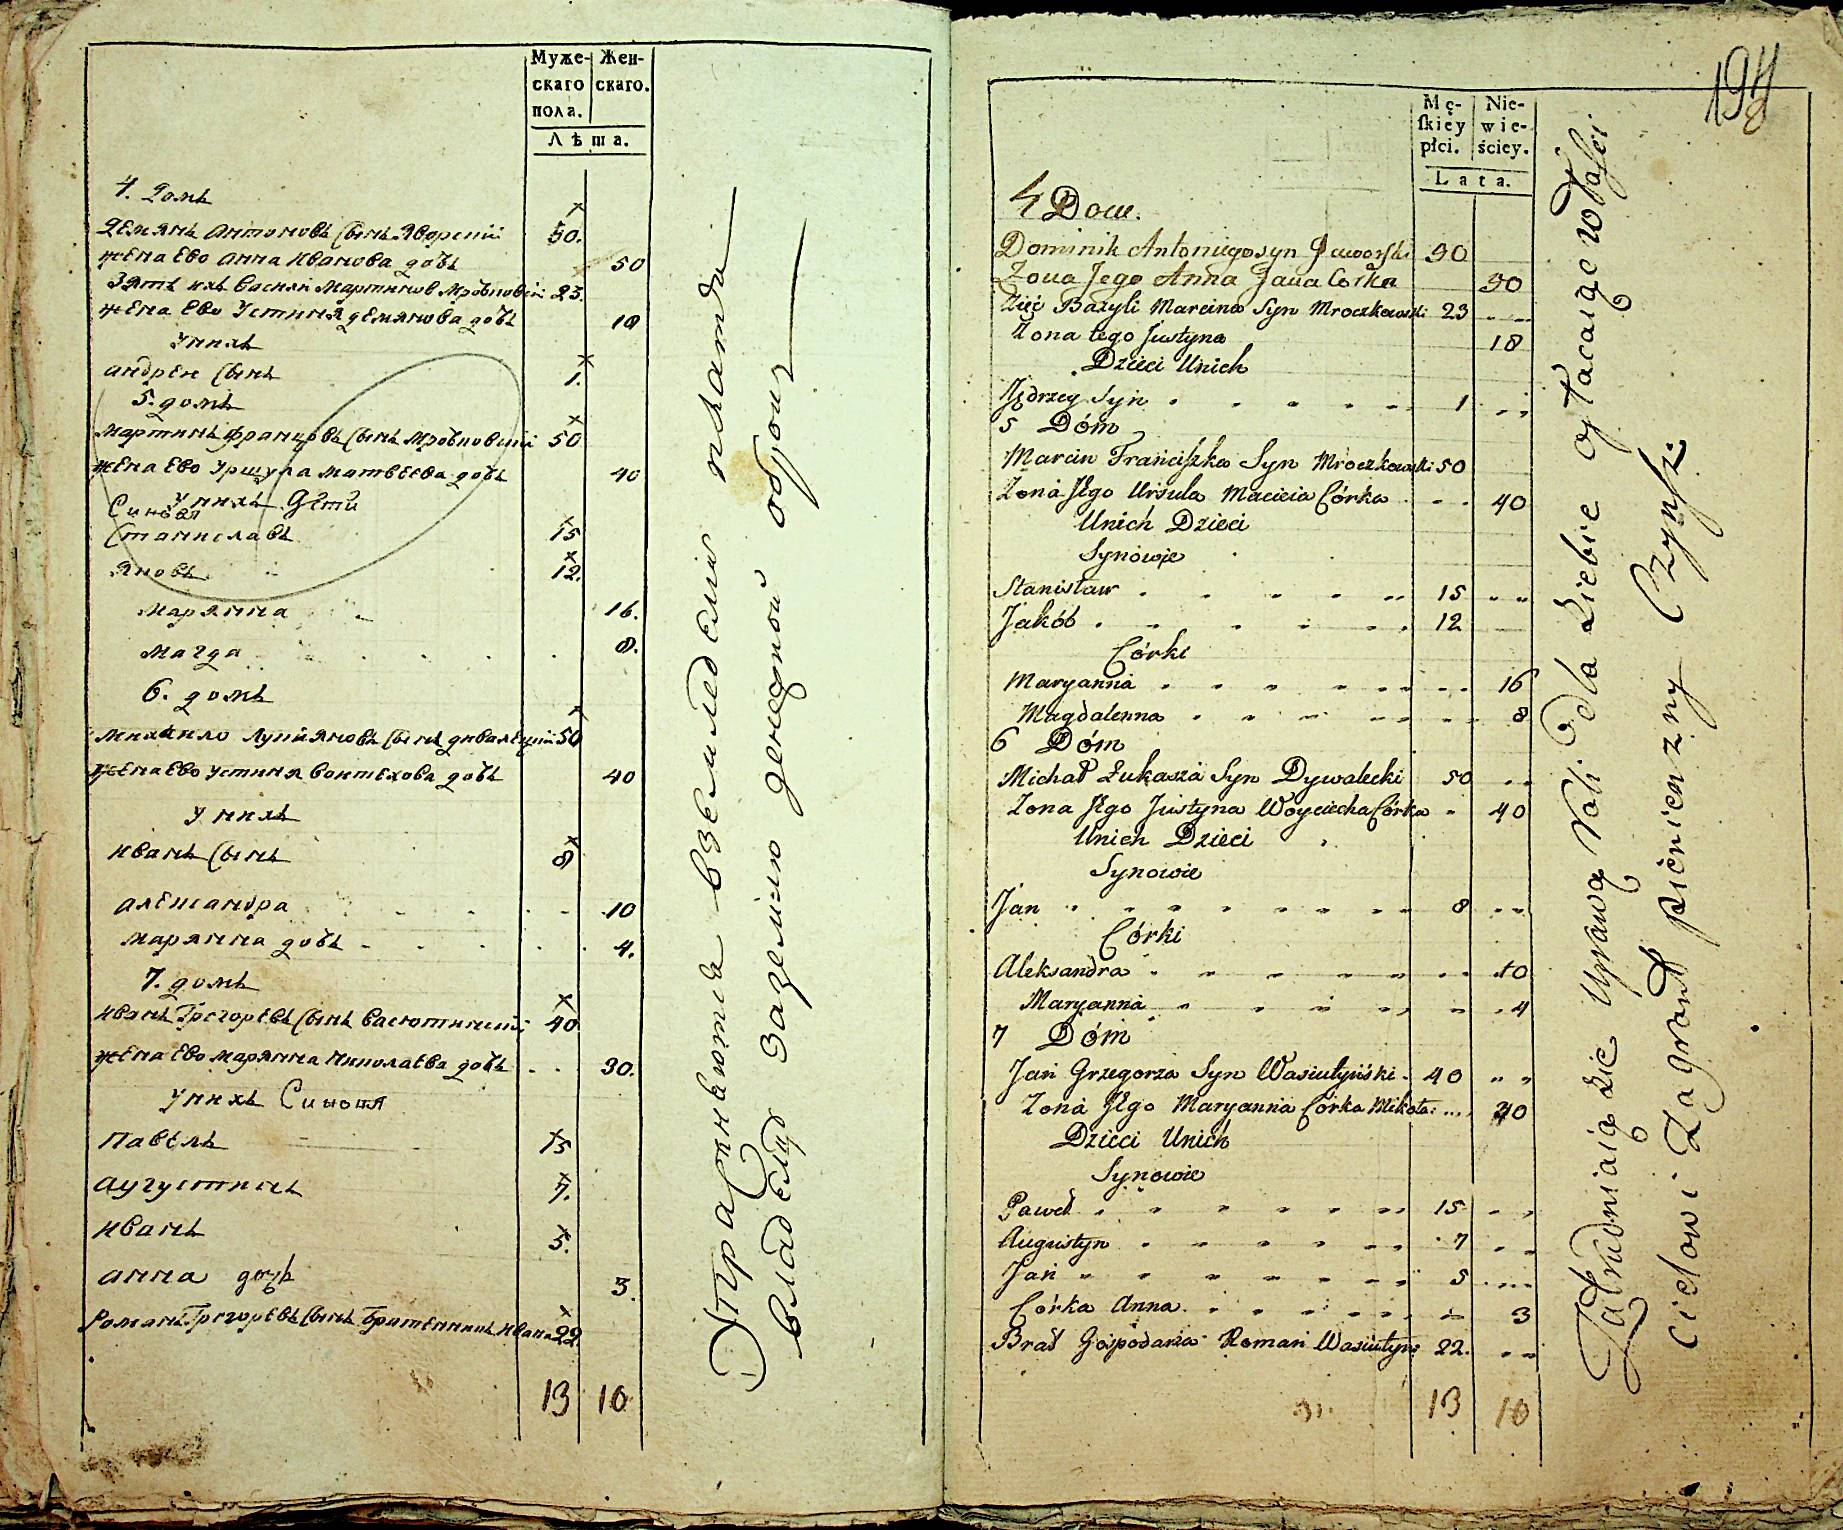 Муже-
скаго
пола.
Жен-
скаго.
Лѣта.
4. Домъ
Демянъ Антоновъ Сынъ Яворскій 50.
жена Ево Анна Иванова дочь 50
Зять ихъ Василй Мартиновъ Мрочковскій 23.
жена Ево Устиня демянова дочь 18
У нихъ
андреи Сынъ 1.
5. домъ
Мартинъ францовъ Сынъ Мрочковскій 50
жена Ево Уршула Матвеева дочь 40
У нихъ Дѣти
Синовя
Станиславъ 15
Яковъ 12.
Марянна 16.
Магда 8.
6. домъ
Михаило Лукйяновъ Сынъ дивалецкій 50
жена Ево Устиня Воитехова дочь 40
У нихъ
иванъ Сынъ 8
александра 10
марянна дочь 4.
7. домъ
иванъ Грегоревъ Сынъ Васютинскій 40
жена Ево Марянна Николаева дочь 30.
У нихъ Синовя
Павелъ 15
аугустинъ 7.
иванъ 5.
анна дочь 3.
Романъ Грегоревъ Сынъ Братенникъ ивана 22.
13 10
Упражняются в земледелие платя
владелцу за землю денежной оброкъ
198
Mę-
skiéy
płci.
Nie-
wie-
ściey.
Lata.
4 Dom.
Dominik Antoniego syn Jaworski 50
Żona Jego Anna Jana Corka 50
Zięć Bazyli Marcina Syn Mroczkowski 23
Żona tego Justyna 18
Dzieci Unich
Jędrzey Syn 1
5 Dóm
Marcin Franciszka Syn Mroczkowski 50
Żona Jego Urszula Macieia Córka 40
Unich Dzieci
Synowie
Stanisław 15
Jakób 12
Córki
Maryanna 16
Magdalenna 8
6 Dóm
Michał Łukasza Syn Dywalecki 50
Żona Jego Justyna Woyciecha Córka 40
Unich Dzieci
Synowie
Jan 8
Córki
Aleksandra 10
Maryanna 4
7 Dóm
Jan Grzegorza Syn Wasiutyński 40
Żona Jego Maryanna Córka Mikoła: 30
Dzieci Unich
Synowie
Paweł 15
Augustyn 7
Jan 5
Córka Anna 3
Brat Gospodarza Roman Wasiutyń: 22.
13 10
Zatrudniaią sie Uprawą Roli dla siebie opłacaiąc właści
cielowi Za grunt pienienzny Czynsz.